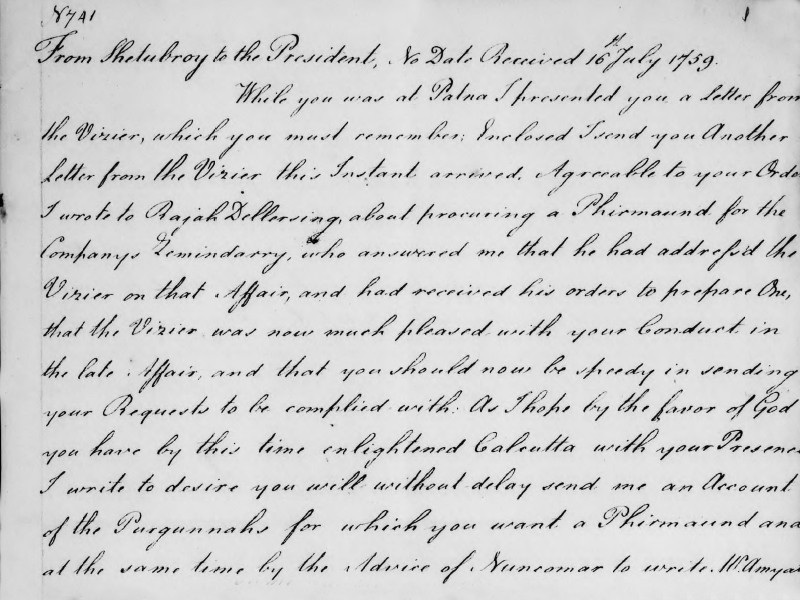 N741
1
From Shetubroy to the President, No Date Received 16th July 1759.
While you was at Patna I presented you a Letter from
the Vizier, which you must remember: Enclosed I send you Another
Letter from the Vizier this Instant arrived. Agreeable to your Orde
I wrote to Rajah Dellersing, about procuring a Phirmaund for the
Companys Zemindarry, who answered me that he had address'd the
Vizier on that Affair, and had received his orders to prepare One,
that the Vizier was now much pleased with your Conduct in
the late Affair, and that you should now be speedy in sending
your Requests to be complied with: As I hope by the favor of God
you have by this time enlightened Calcutta with your Presence
I write to desire you will without delay send me an Account
of the Purgunnahs for which you want a Phirmaund and
at the same time by the Advice of Nuncomar to write Mr. Amya